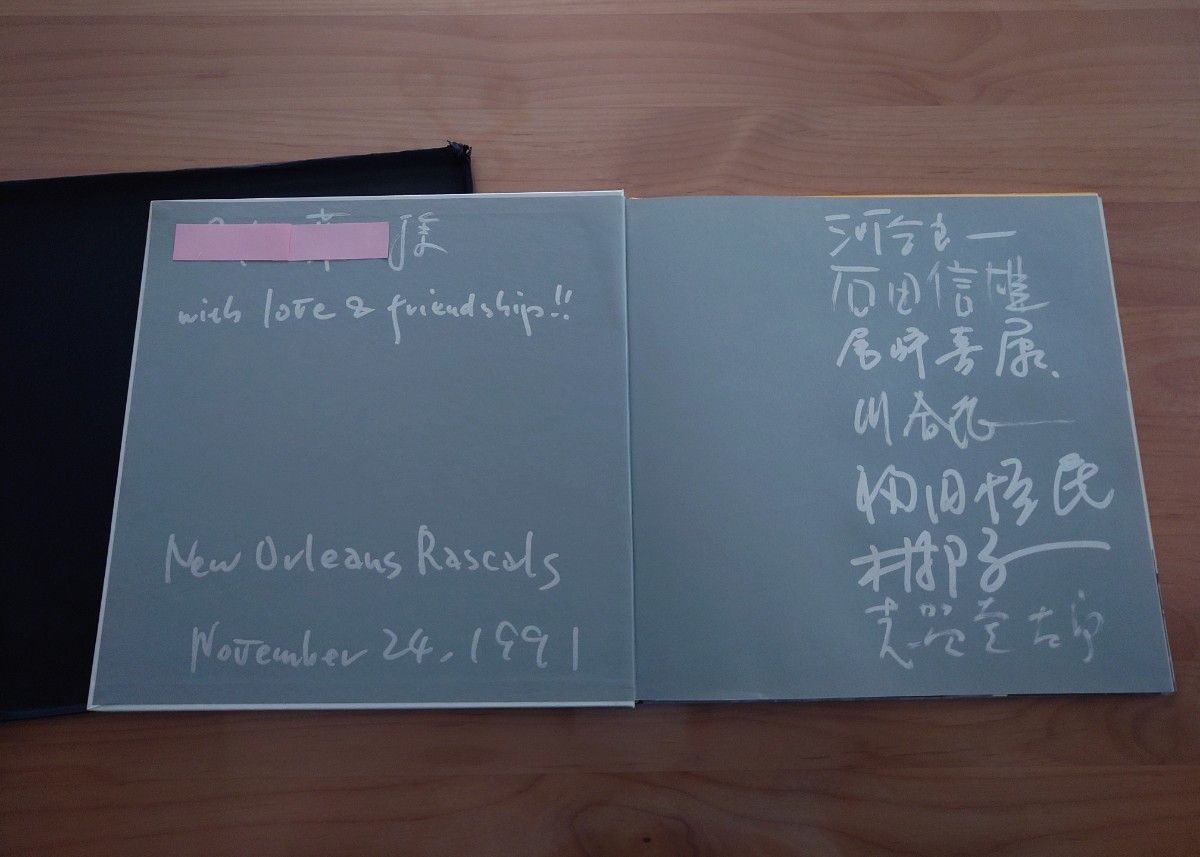 様
with love & friendship!!
New Orleans Rascals
November 24, 1991
河合良一
石田信雄
尾崎喜康
川合純一
福田恪民
木村邦子
志賀奎太郎